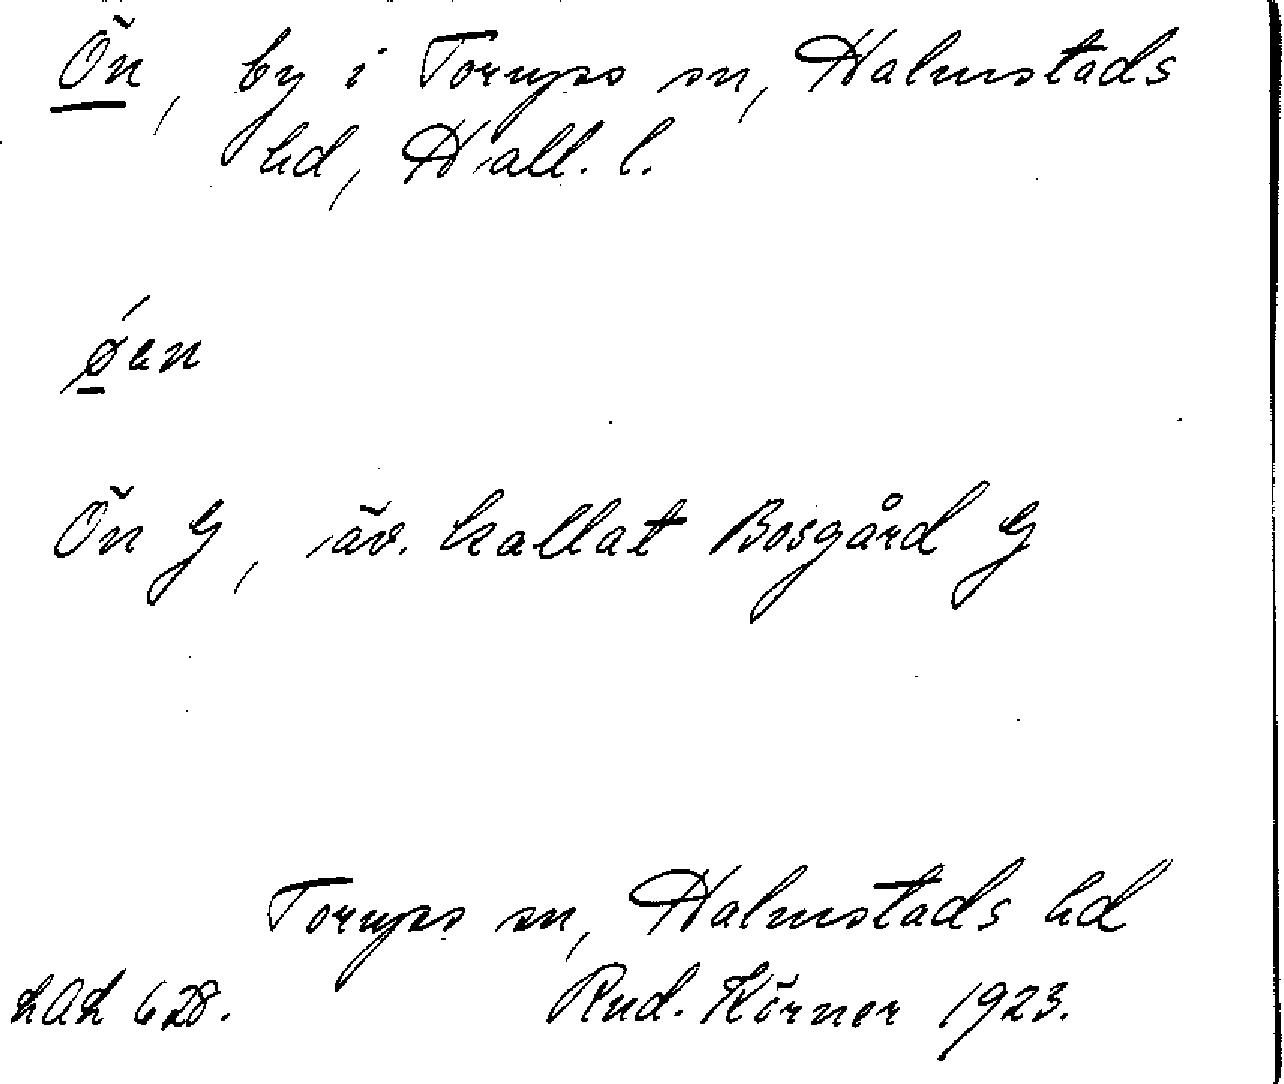 Ön, by i Torups sn, Halmstads
hd, Hall. l.
ǿen
Ön G, äv. kallat Bosgård G
Torups sn, Halmstads hd
Rud. Körner 1923.